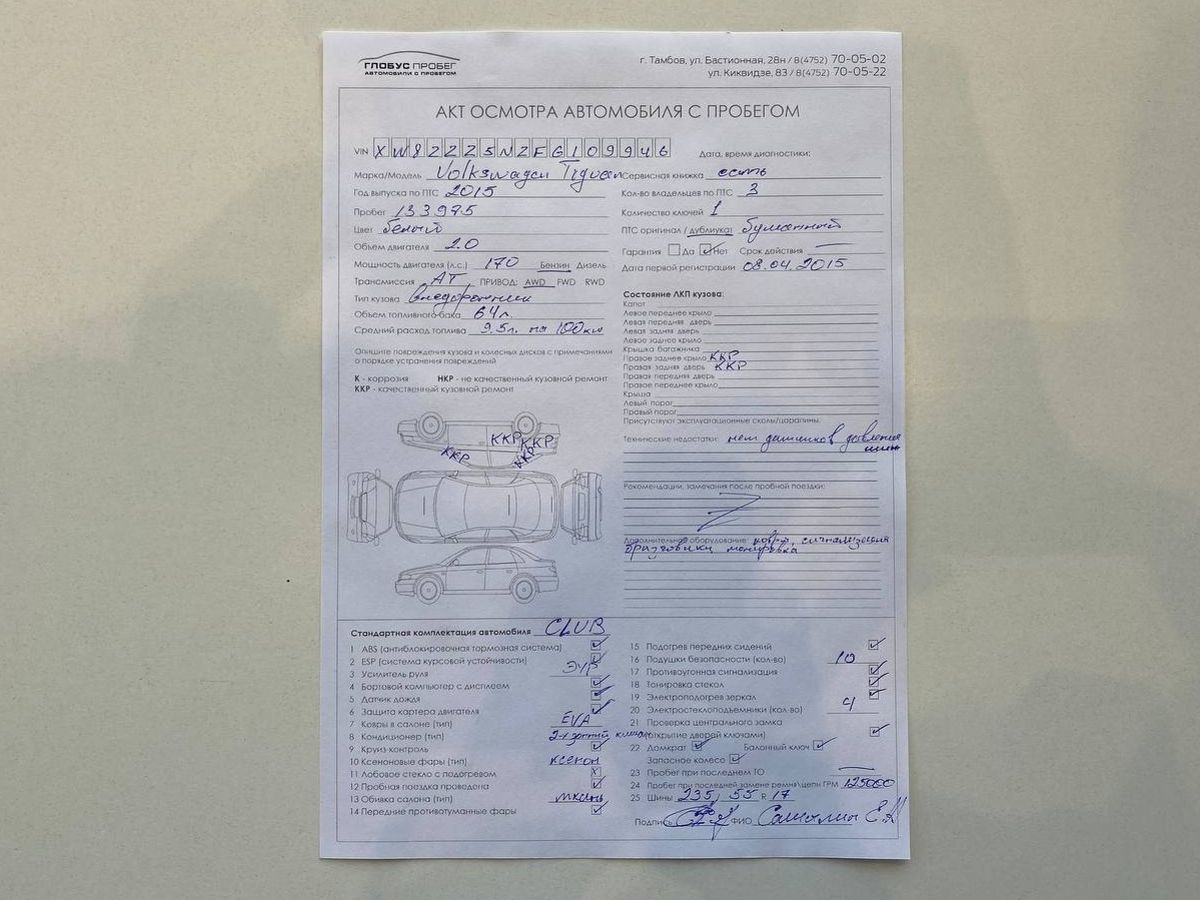 ГЛОБУС ПРОБЕГ
АВТОМОБИЛИ С ПРОБЕГОМ
г. Тамбов, ул. Бастионная, 28н / 8(4752) 70-05-02
ул. Киквидзе, 83 / 8(4752) 70-05-22
АКТ ОСМОТРА АВТОМОБИЛЯ С ПРОБЕГОМ
VIN XW8ZZZ5NZFG109946
Марка/Модель Volkswagen Tiguan
Год выпуска по ПТС 2015
Пробег 133975
Цвет белый
Объем двигателя 2.0
Мощность двигателя (л.с.) 170 Бензин Дизель
Трансмиссия АТ ПРИВОД: AWD FWD RWD
Тип кузова внедорожник
Объем топливного бака 64л.
Средний расход топлива 9.5л. на 100км
Опишите повреждения кузова и колесных дисков с примечаниями
о порядке устранения повреждений
К - коррозия НКР - не качественный кузовной ремонт
ККР - качественный кузовной ремонт
ККР ККР
ККР ККР
Дата, время диагностики:
Сервисная книжка есть
Кол-во владельцев по ПТС 3
Количество ключей 1
ПТС оригинал / дубликат бумажный
Гарантия Да Нет Срок действия —
Дата первой регистрации 08.04.2015
Состояние ЛКП кузова:
Капот
Левое переднее крыло
Левая передняя дверь
Левая задняя дверь
Левое заднее крыло
Крышка багажника
Правое заднее крыло ККР
Правая задняя дверь ККР
Правая передняя дверь
Правое переднее крыло
Крыша
Левый порог
Правый порог
Присутствуют эксплуатационные сколы/царапины.
Технические недостатки: нет датчиков давления
шин
Рекомендации, замечания после пробной поездки:
Дополнительное оборудование: сигнализация
брызговики тонировка
Стандартная комплектация автомобиля CLUB
1 ABS (антиблокировочная тормозная система)
2 ESP (система курсовой устойчивости)
3 Усилитель руля ЭУР
4 Бортовой компьютер с дисплеем
5 Датчик дождя
6 Защита картера двигателя
7 Ковры в салоне (тип) EVA
8 Кондиционер (тип) 2-х зонный климат
9 Круиз-контроль
10 Ксеноновые фары (тип) ксенон
11 Лобовое стекло с подогревом
12 Пробная поездка проведена
13 Обивка салона (тип) ткань
14 Передние противотуманные фары
15 Подогрев передних сидений
16 Подушки безопасности (кол-во) 10
17 Противоугонная сигнализация
18 Тонировка стекол
19 Электроподогрев зеркал
20 Электростеклоподъемники (кол-во) 4
21 Проверка центрального замка
(открытие дверей ключами)
22 Домкрат Балонный ключ
Запасное колесо
23 Пробег при последнем ТО —
24 Пробег при последней замене ремня/цепи ГРМ 125000
25 Шины 235 / 55 R 17
Подпись ФИО